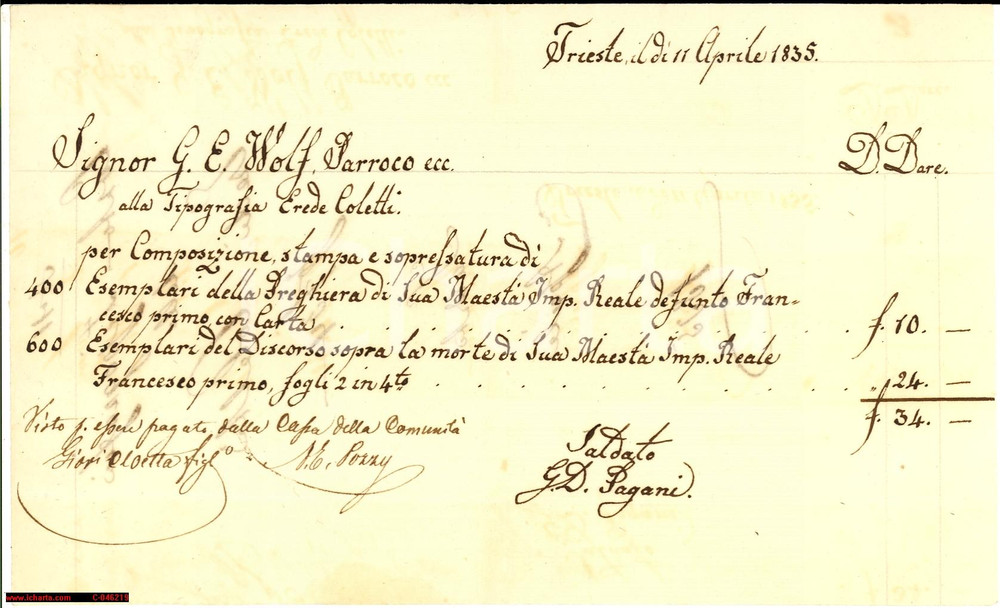 Trieste, il dì 11 Aprile 1835.
Signor G. E. Wolf, Parroco ecc.
D. Dare.
alla Tipografia Erede Coletti.
per Composizione, stampa e sopressatura di
400 Esemplari della Preghiera di Sua Maestà Imp. Reale defunto Fran-
cesco primo, con Carta . . . . f. 10. —
600 Esemplari del Discorso sopra la morte di Sua Maestà Imp. Reale
Francesco primo, fogli 2 in 4to . . . . . . . . " 24. —
f. 34. —
Visto p. essere pagato dalla Cassa della Comunità
figlo
Saldato
G. D. Pagani.
www.icharta.com C-846219